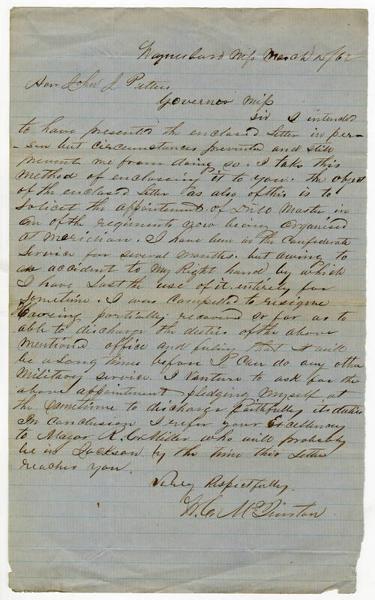 Waynesboro Miss March 12/62
Hon John J Pettus
Governor Miss
Sir I intended
to have presented the enclosed letter in per-
son but circumstances prevented and still
prevents me from doing so. I take this
method of enclosing it to you. the object
of the enclosed letter as also of this is to
solicit the appointment of Drill Master in
on of the regiments now being organised
at Meridian. I have been in the Confederate
Service for several months. but owing to
an accident to my Right hand by which
I have lost the use of it entirely for
sometime. I was compelled to resigne
haveing partially recovered so far as to
able to discharge the duties of the above
mentioned office and feeling that it will
be a long time before I can do any other
Military service. I venture to ask for the
above appointment pledging myself at
the sametime to discharge faithfully its duties
In conclusion I refer your Excellency
to Major R. C. Miller who will probably
be in Jackson by the time this letter
reaches you.
Very Respectfully